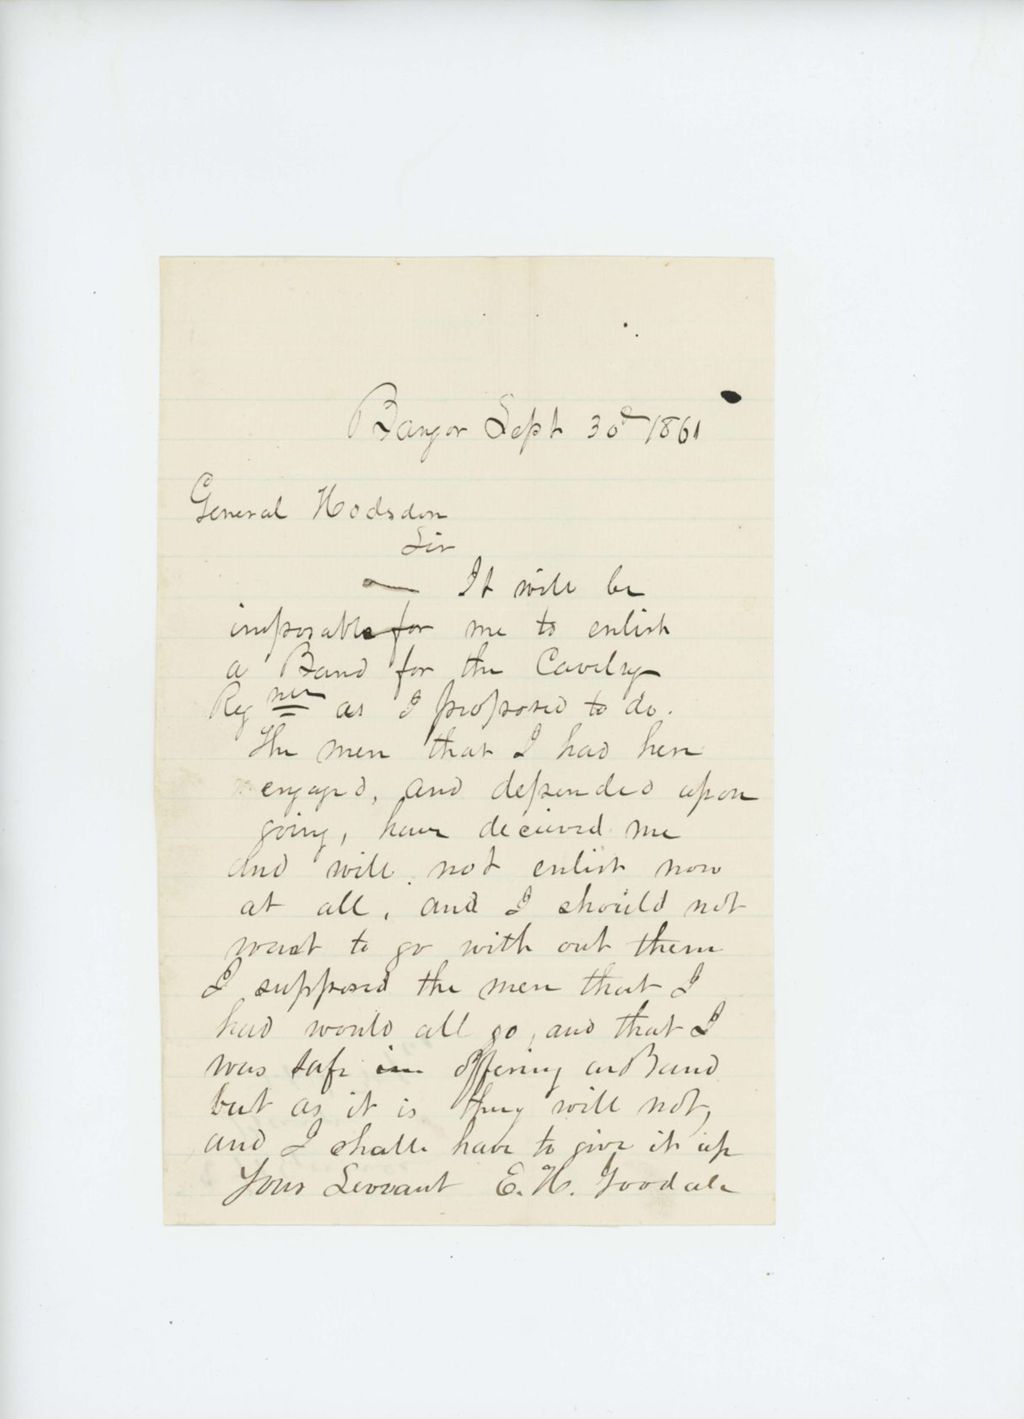 Bangor Sept 30d 1861
General Hodsdon
Sir
It will be
imposable for me to enlist
a Band for the Cavelry
Regmen as I proposed to do.
The men that I had here
engaged, and depended upon
going, have deceived me
and will not enlist now
at all, and I should not
want to go with out them
I supposed the men that I
had would all go, and that I
was safe in offering a Band
but as it is they will not,
and I shall have to give it up
Your Servant E. H. Goodale